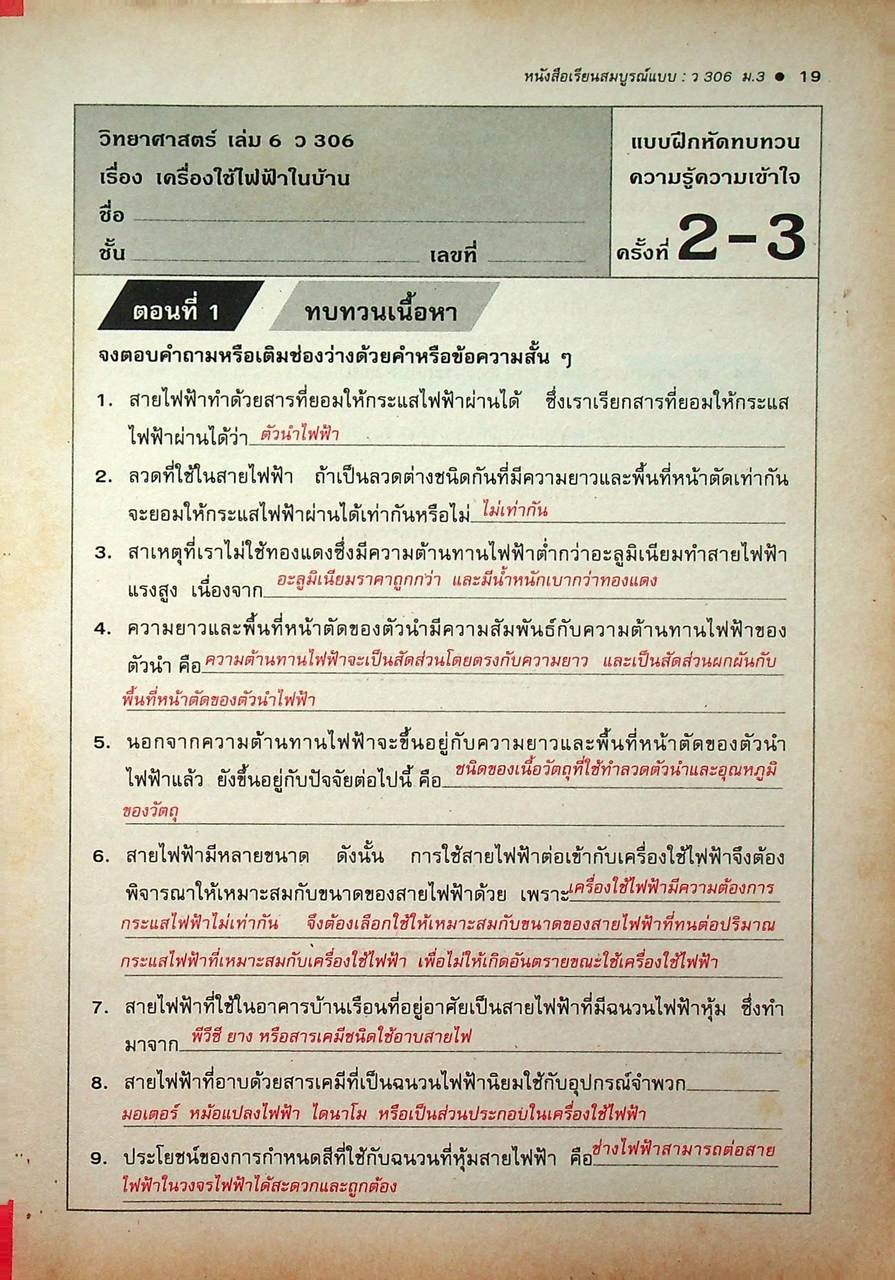 หนังสือเรียนสมบูรณ์แบบ : ว 306 ม.3 ● 19
วิทยาศาสตร์ เล่ม 6 ว 306
เรื่อง เครื่องใช้ไฟฟ้าในบ้าน
ชื่อ
ชั้น เลขที่
แบบฝึกหัดทบทวน
ความรู้ความเข้าใจ
ครั้งที่ 2-3
ตอนที่ 1 ทบทวนเนื้อหา
จงตอบคำถามหรือเติมช่องว่างด้วยคำหรือข้อความสั้น ๆ
1. สายไฟฟ้าทำด้วยสารที่ยอมให้กระแสไฟฟ้าผ่านได้ ซึ่งเราเรียกสารที่ยอมให้กระแส
ไฟฟ้าผ่านได้ว่า ตัวนำไฟฟ้า
2. ลวดที่ใช้ในสายไฟฟ้า ถ้าเป็นลวดต่างชนิดกันที่มีความยาวและพื้นที่หน้าตัดเท่ากัน
จะยอมให้กระแสไฟฟ้าผ่านได้เท่ากันหรือไม่ ไม่เท่ากัน
3. สาเหตุที่เราไม่ใช้ทองแดงซึ่งมีความต้านทานไฟฟ้าต่ำกว่าอะลูมิเนียมทำสายไฟฟ้า
แรงสูง เนื่องจาก อะลูมิเนียมราคาถูกกว่า และมีน้ำหนักเบากว่าทองแดง
4. ความยาวและพื้นที่หน้าตัดของตัวนำมีความสัมพันธ์กับความต้านทานไฟฟ้าของ
ตัวนำ คือ ความต้านทานไฟฟ้าจะเป็นสัดส่วนโดยตรงกับความยาว และเป็นสัดส่วนผกผันกับ
พื้นที่หน้าตัดของตัวนำไฟฟ้า
5. นอกจากความต้านทานไฟฟ้าจะขึ้นอยู่กับความยาวและพื้นที่หน้าตัดของตัวนำ
ไฟฟ้าแล้ว ยังขึ้นอยู่กับปัจจัยต่อไปนี้ คือ ชนิดของเนื้อวัตถุที่ใช้ทำลวดตัวนำและอุณหภูมิ
ของวัตถุ
6. สายไฟฟ้ามีหลายขนาด ดังนั้น การใช้สายไฟฟ้าต่อเข้ากับเครื่องใช้ไฟฟ้าจึงต้อง
พิจารณาให้เหมาะสมกับขนาดของสายไฟฟ้าด้วย เพราะเครื่องใช้ไฟฟ้ามีความต้องการ
กระแสไฟฟ้าไม่เท่ากัน จึงต้องเลือกใช้ให้เหมาะสมกับขนาดของสายไฟฟ้าที่ทนต่อปริมาณ
กระแสไฟฟ้าที่เหมาะสมกับเครื่องใช้ไฟฟ้า เพื่อไม่ให้เกิดอันตรายขณะใช้เครื่องใช้ไฟฟ้า
7. สายไฟฟ้าที่ใช้ในอาคารบ้านเรือนที่อยู่อาศัยเป็นสายไฟฟ้าที่มีฉนวนไฟฟ้าหุ้ม ซึ่งทำ
มาจาก พีวีซี ยาง หรือสารเคมีชนิดใช้อาบสายไฟ
8. สายไฟฟ้าที่อาบด้วยสารเคมีที่เป็นฉนวนไฟฟ้านิยมใช้กับอุปกรณ์จำพวก
มอเตอร์ หม้อแปลงไฟฟ้า ไดนาโม หรือเป็นส่วนประกอบในเครื่องใช้ไฟฟ้า
9. ประโยชน์ของการกำหนดสีที่ใช้กับฉนวนที่หุ้มสายไฟฟ้า คือ ช่างไฟฟ้าสามารถต่อสาย
ไฟฟ้าในวงจรไฟฟ้าได้สะดวกและถูกต้อง